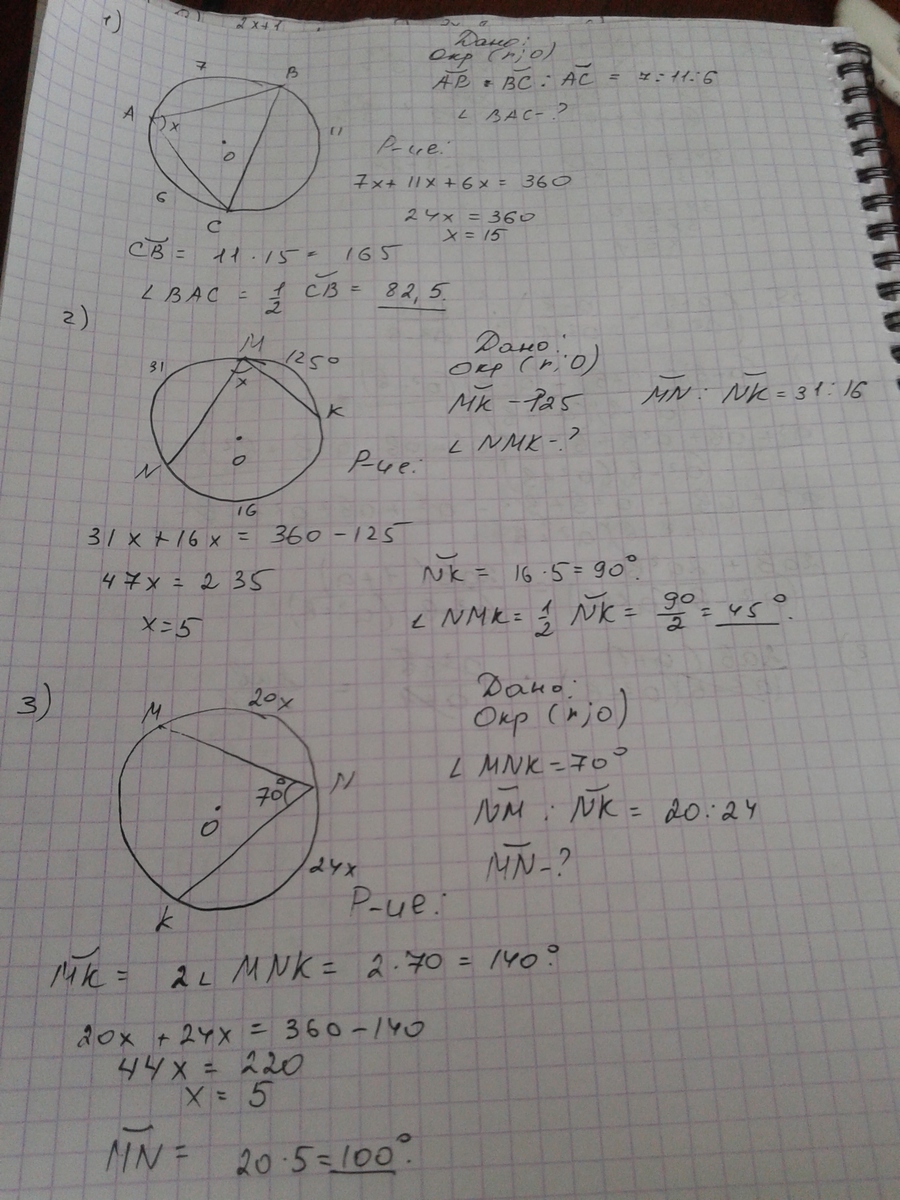 1)
2x+1
Дано:
Окр (r; O)
7
B
A
x
O
11
6
C
A͝B : B͝C : A͝C = 7:11:6
∠ BAC - ?
Р-ие:
7x + 11x + 6x = 360
24x = 360
x = 15
C͝B = 11 · 15 = 165
∠ BAC = 1/2 C͝B = 82,5.
2)
31
M
125°
x
K
N
O
16
Дано:
Окр (r; O)
M͝K - 125 M͝N : N͝K = 31:16
∠ NMK - ?
Р-ие:
31x + 16x = 360 - 125
47x = 235
x = 5
N͝K = 16 · 5 = 90°.
∠ NMK = 1/2 N͝K = 90/2 = 45°.
3)
M
20x
70°
N
O
24x
K
Дано:
Окр (r; O)
∠ MNK = 70°
N͝M : N͝K = 20:24
M͝N - ?
Р-ие:
M͝K = 2∠ MNK = 2 · 70 = 140°.
20x + 24x = 360 - 140
44x = 220
x = 5
M͝N = 20 · 5 = 100°.